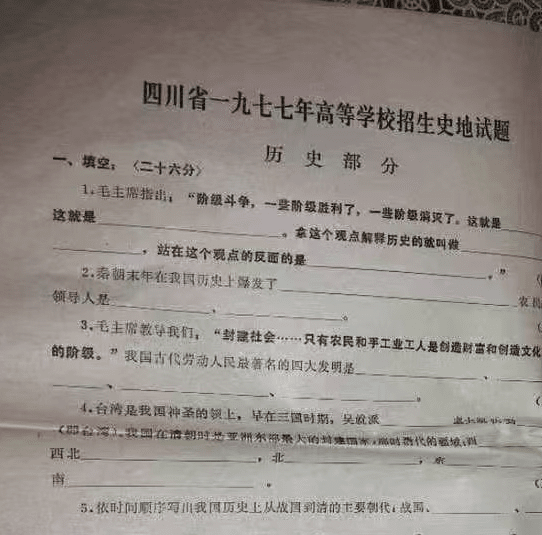 四川省一九七七年高等学校招生史地试题
历史部分
一、填空：（二十六分）
1.毛主席指出：“阶级斗争，一些阶级胜利了，一些阶级消灭了。这就是
这就是 。拿这个观点解释历史的就叫做
，站在这个观点的反面的是 。”
2.秦朝末年在我国历史上爆发了 农民
领导人是 、 。
3.毛主席教导我们：“封建社会……只有农民和手工业工人是创造财富和创造文化
的阶级。”我国古代劳动人民最著名的四大发明是 、
、 、 。
4.台湾是我国神圣的领土，早在三国时期，吴就派
（即台湾）。我国在清朝时是亚洲东部最大的封建国家，当时清代的疆域：西
西北 ，北 ，东
南 。
5.依时间顺序写出我国历史上从战国到清的主要朝代：战国、 、